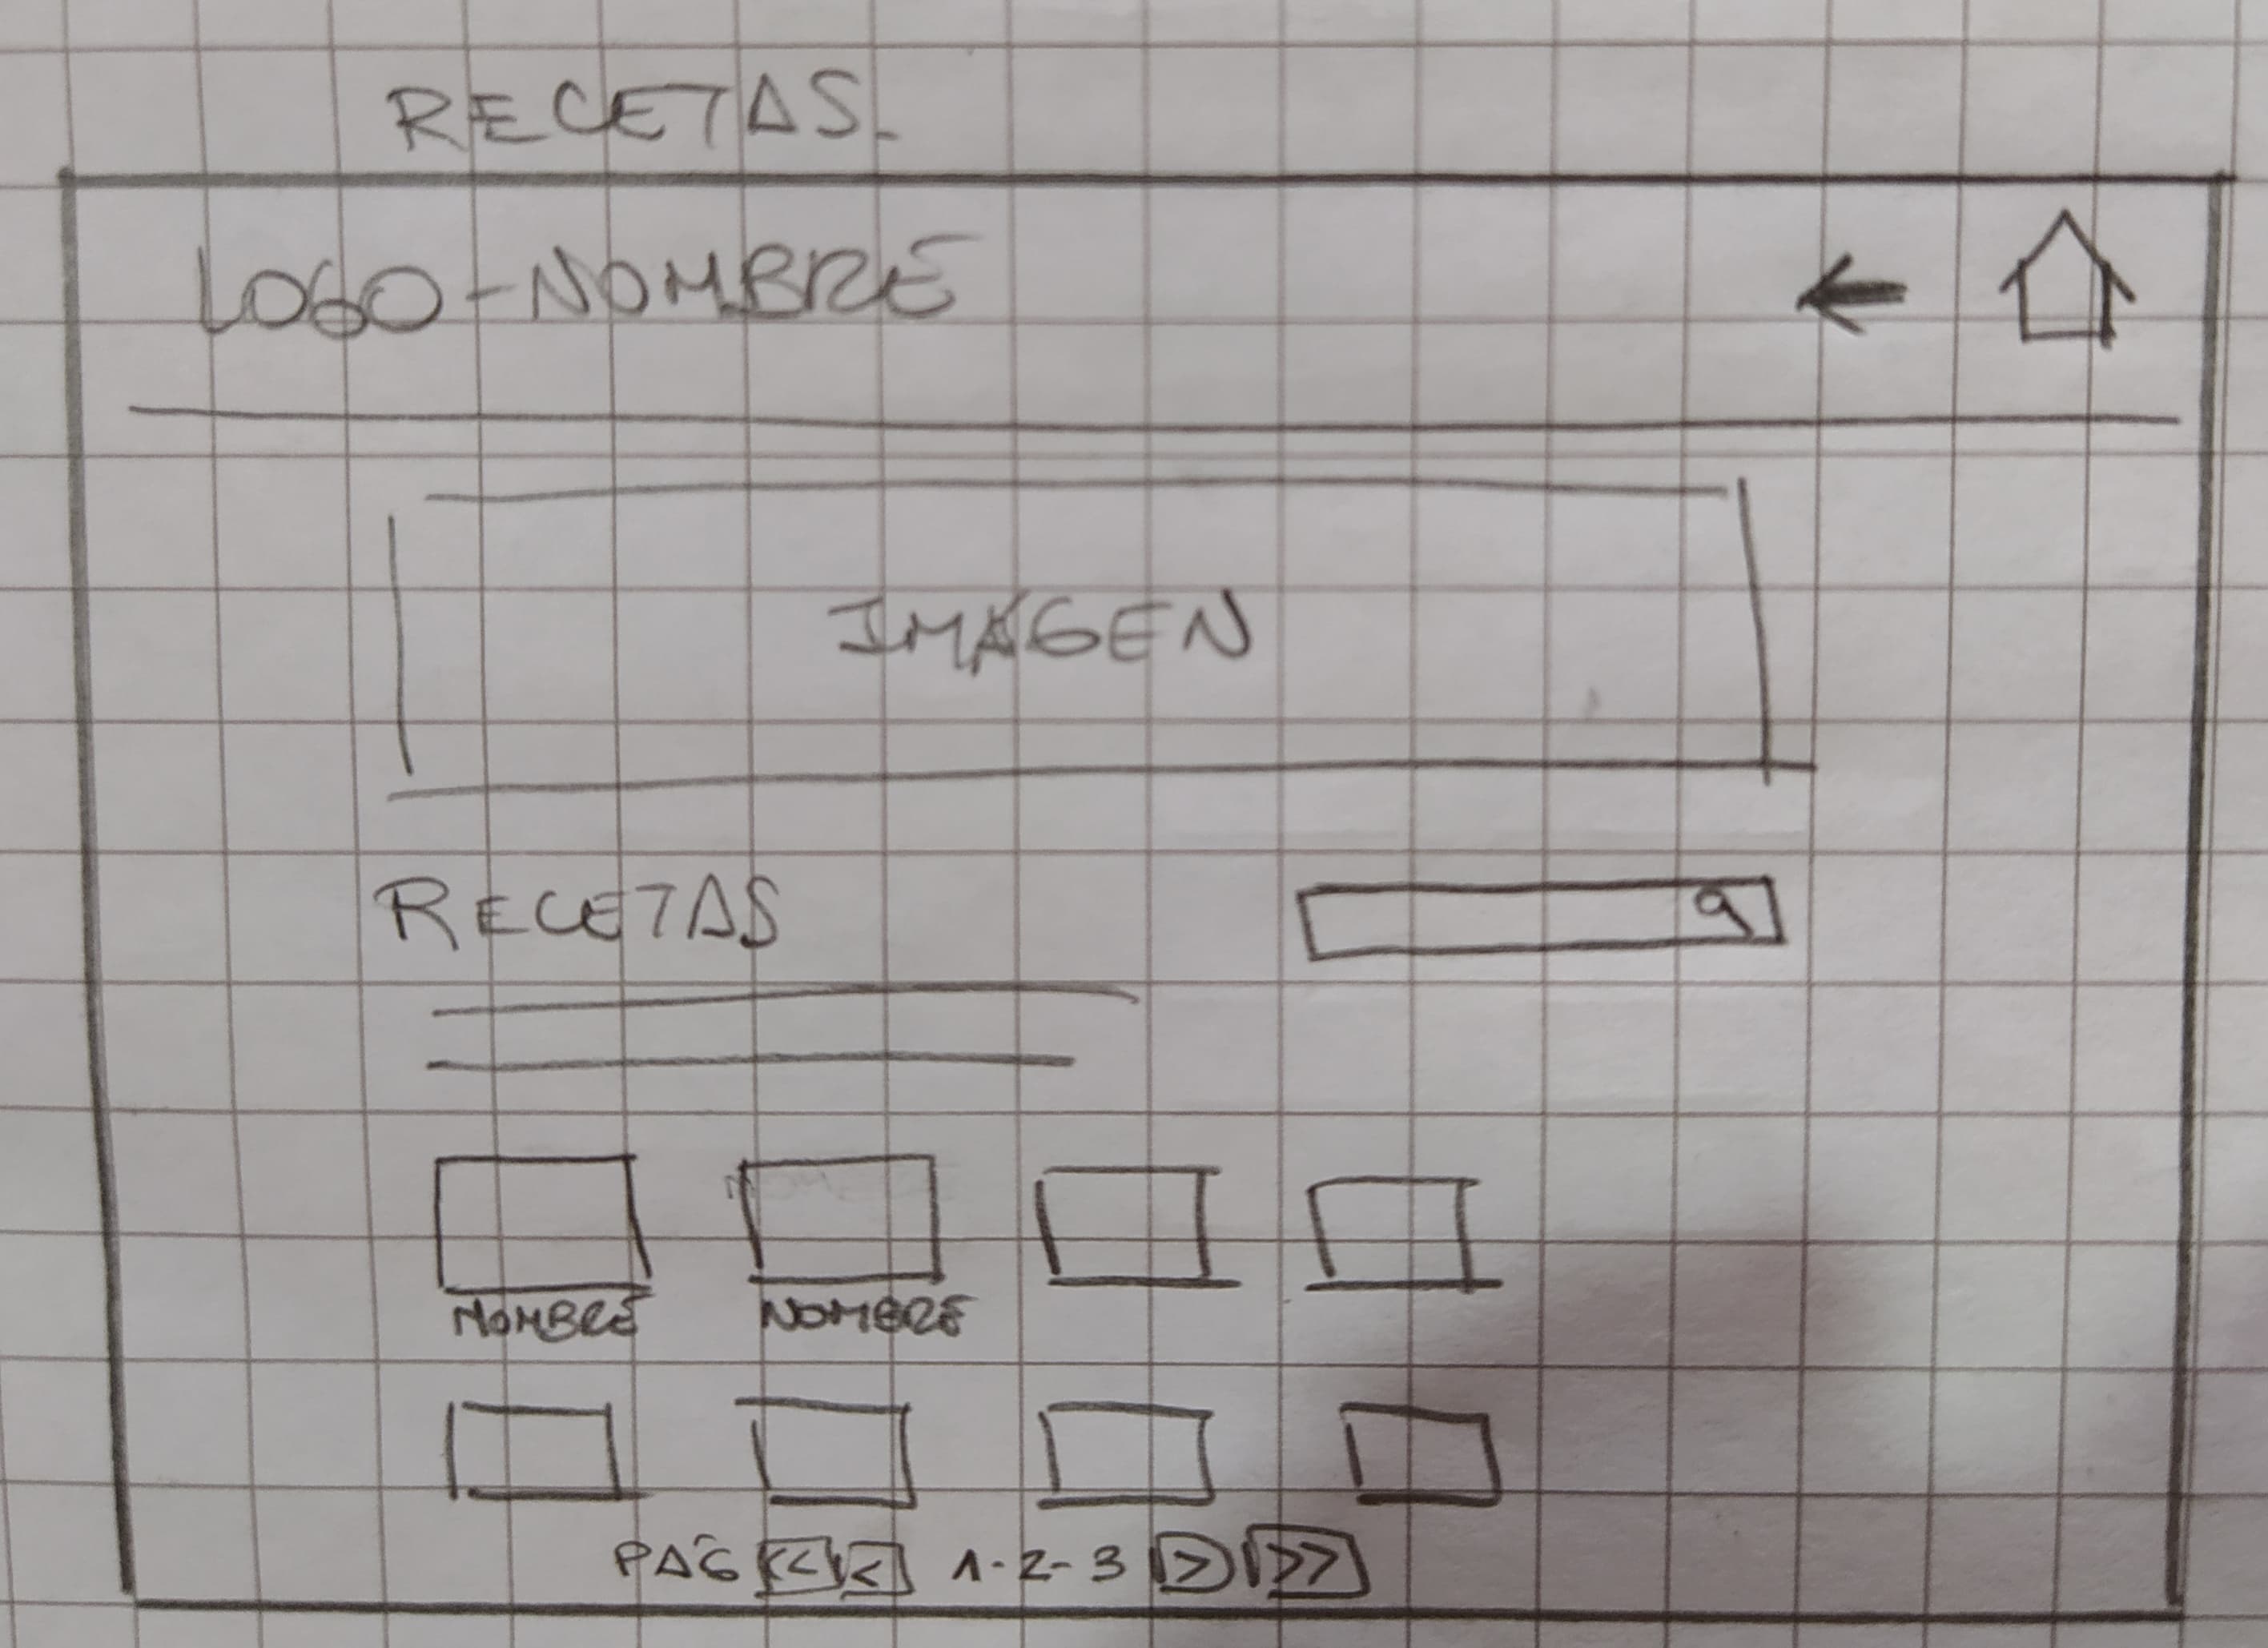 RECETAS
LOGO-NOMBRE
IMAGEN
RECETAS
NOMBRE NOMBRE
PÁG << < 1-2-3 > >>